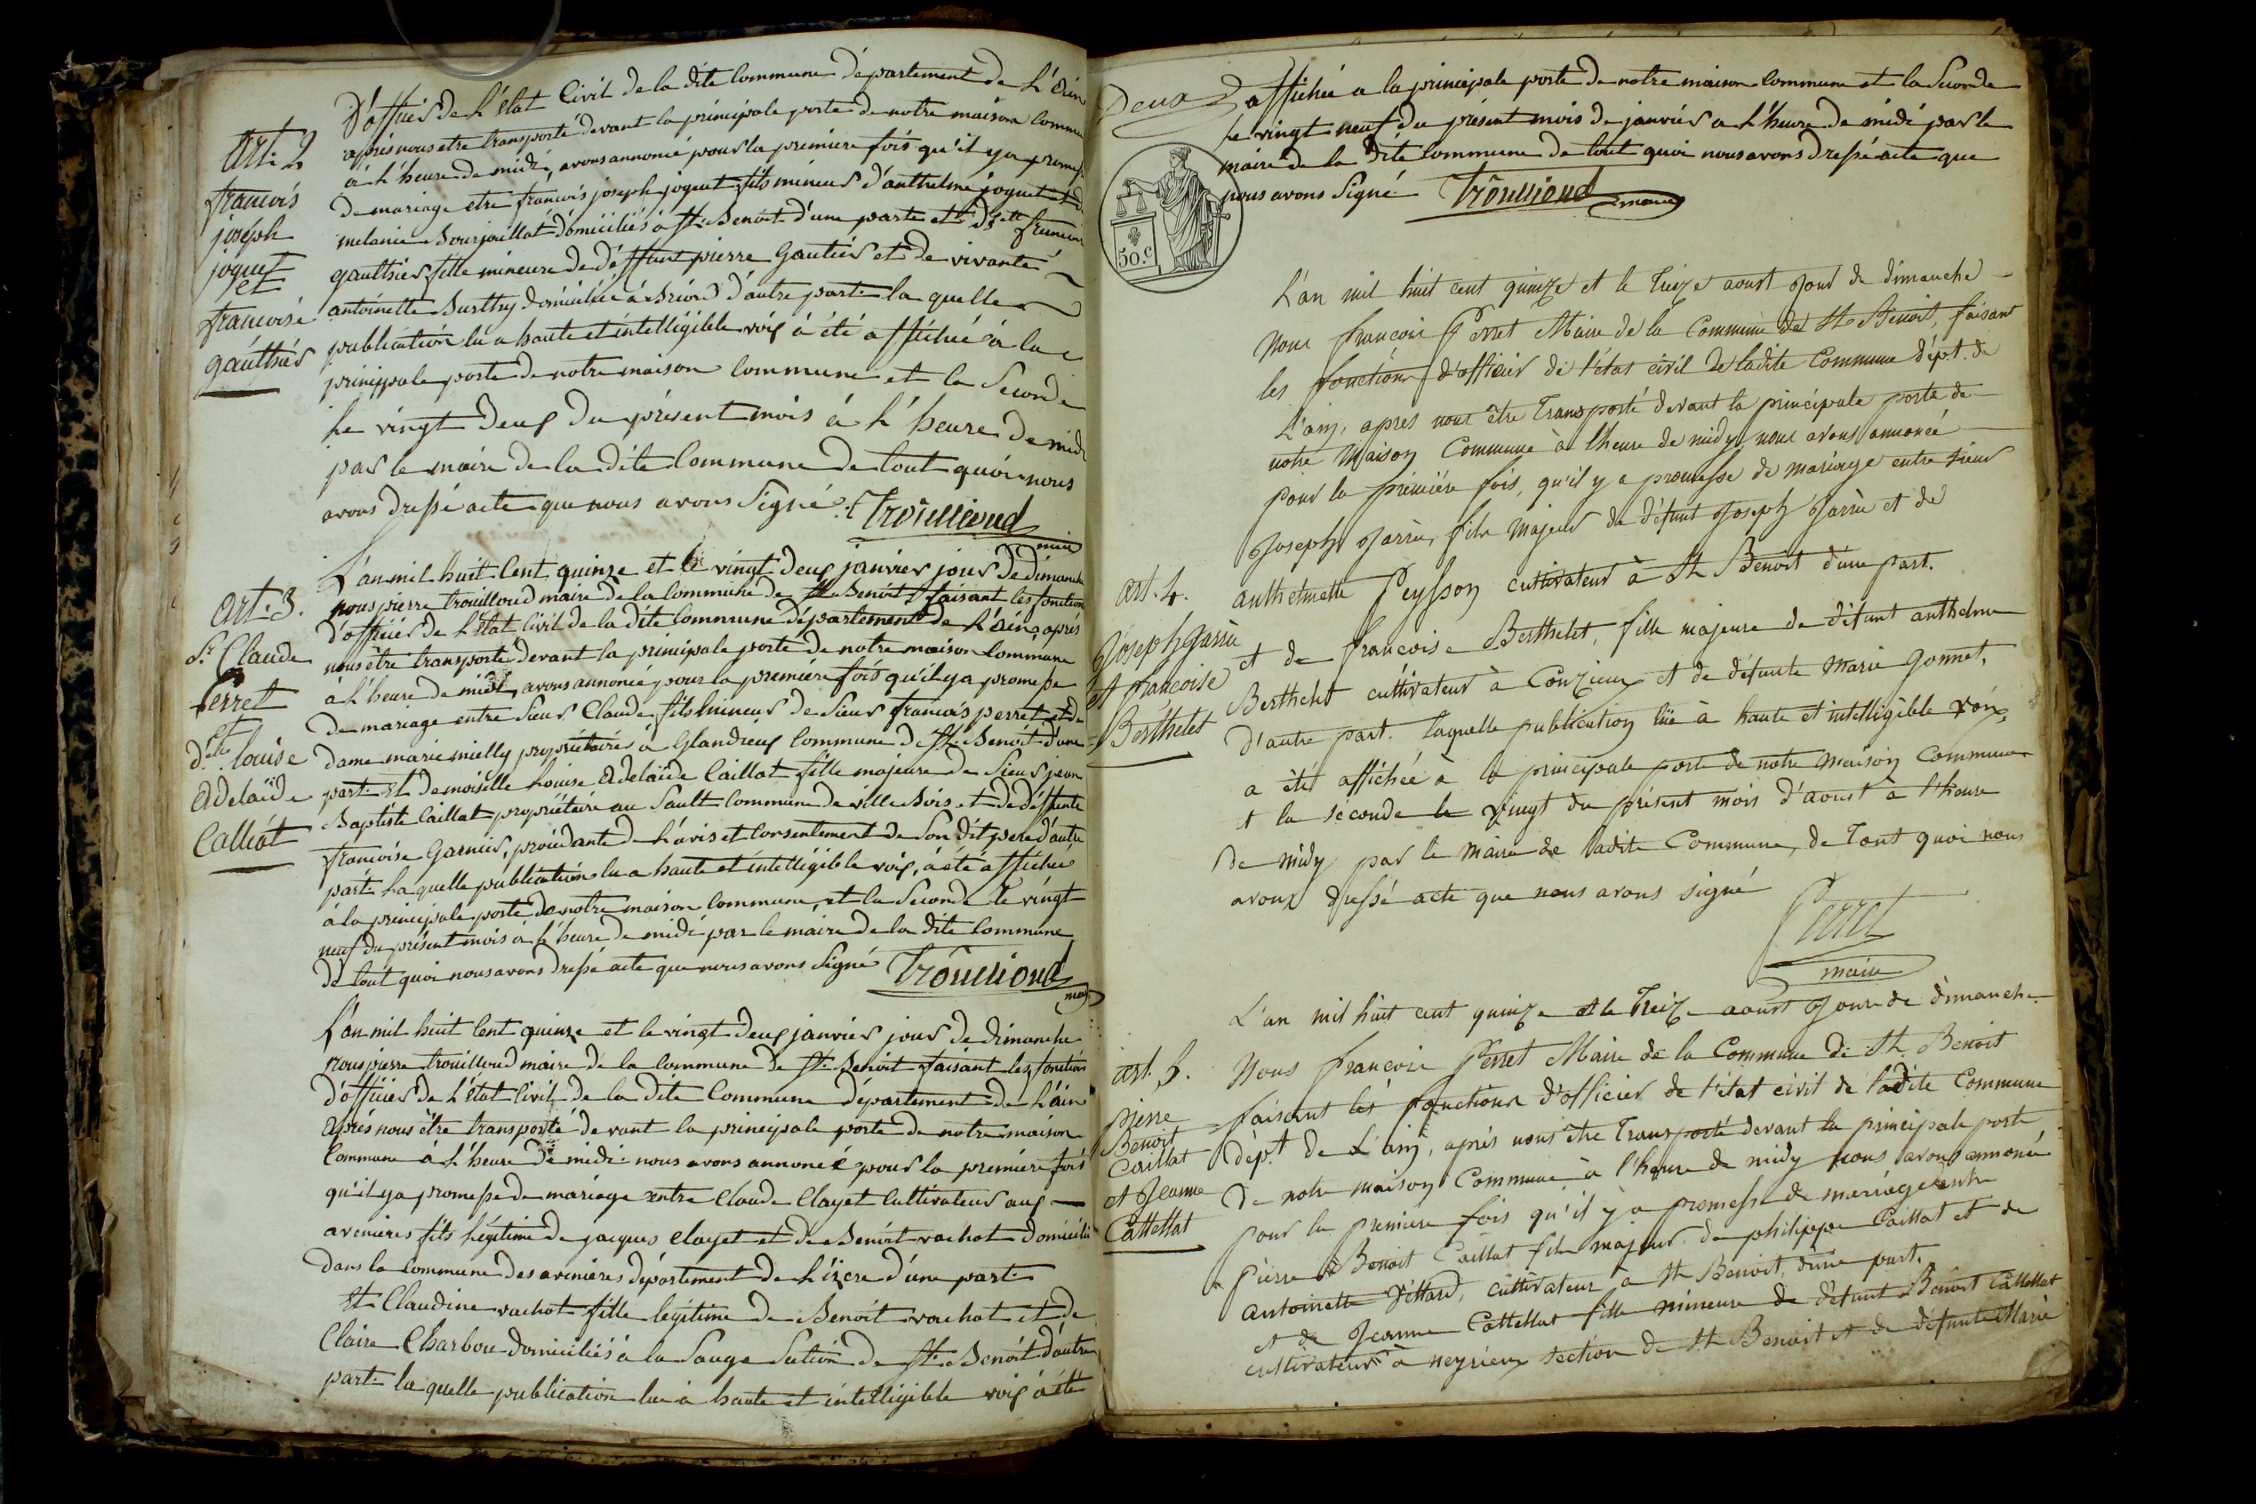 D'officier de L'état Civil de la dite Commune département de L'ain
après nous etre transporté devant la principale porte de notre maison Commune
Art. 2
à L'heure de midi, avons annoncé pour la premiere fois qu'il y a promesse
françois
de mariage etre francois joseph joguet fils mineur d'anthelme joguet et de
joséph
melanie Bourjaillat domiciliés à St. Benoit d'une part et de dlle francoise
joguet
et
gauthier fille mineure de déffunt pierre Gautier et de vivante
françoise
antoinette Burthy domiciliée à Briord d'autre part la quelle
publication lu a haute et intelligible voix à été affichée à la
gauthier
principale porte de notre maison Commune et la Seconde
Le vingt deux du présent mois à L'heure de midi
par le maire de la dite Commune de tout quoi nous
avons dressé acte que nous avons Signé. Trouilloud
maire
L'an mil huit Cent quinze et le vingt deux janvier jour de dimanche
Art. 3.
nous pierre trouilloud maire de la Commune de St. Benoit, faisant les fonction
d'officier de L'état Civil de la dite Commune département de L'ain, après
Sr. Claude
nous être transporté devant la principale porte de notre maison Commune
Perret
à L'heure de midi, avons annoncé pour la première fois qu'il y a promesse
et
de mariage entre Sieur Claude fils mineur de Sieur francois perret et de
dlle louise
dame marie mielly propriétaires à Glandieux Commune de St. Benoit d'une
Adelaïde
part Et demoiselle Louise Adelaïde Caillat fille majeure de Sieur jean
Baptiste Caillat propriétaire au Sault Commune de ville Bois et de déffunte
Calliat
francoise Garnier, procédante de L'avis et Consentement de Son dit pere d'autre
part La quelle publication lu a haute et intelligible voix, à été affichée
à la principale porte de notre maison Commune, et la Seconde le vingt
neuf du présent mois à L'heure de midi par le maire de la dite Commune
de tout quoi nous avons dressé acte que nous avons Signé Trouilloud
L'an mil huit Cent quinze et le vingt deux janvier jour de dimanche
nous pierre trouilloud maire de la Commune de St. Benoit faisant les fonctions
d'officier de L'état Civil de la dite Commune département de L'ain
Après nous être transporté devant la principale porte de notre maison
Commune à L'heure de midi nous avons annoncé pour la première fois
qu'il y a promesse de mariage entre Claude Clayet Cultivateur aux
avenieres fils légitime de jacques Clayet et de Benoit vachot domicilié
dans la Commune des avenieres département de L'izere d'une part
Et Claudine vachot fille legitime de Benoit vachot et de
Claire Charbou domiciliés à la Sauge Section de St. Benoit d'autre
part la quelle publication lu à haute et intelligible voix à été
Deux
affichée a la principale porte de notre maison Commune et la Seconde
Le vingt neuf du présent mois de janvier a L'heure de midi par le
maire de la dite Commune de tout quoi nous avons dressé acte que
nous avons Signé Trouilloud
maire
50. C
L'an mil huit cent quinze et le Treize aoust Jour de dimanche
Nous françois Perret Maire de la Commune de St. Benoit, faisant
les fonctions d'officier de l'état civil de ladite Commune dépt. de
L'ain, apres nous être Transporté devant la principale porte de
notre Maison Commune à l'heure de midy, nous avons annoncé
pour la première fois, qu'il y a promesse de mariage entre sieur
Joseph Jarrin, fils Majeur de défunt Joseph Jarrin et de
Art. 4.
anthelmette Peysson cultivateur à St. Benoit d'une part.
Joseph Jarrin
et de françoise Berthelet, fille majeure de défunt anthelme
et françoise
Berthelet cultivateur à Conzieux et de défunte Marie Gonnet,
Berthelet
d'autre part. laquelle publication lüe à haute et intelligible voix,
a été affichée à la principale porte de notre Maison Commune
et la seconde le vingt du présent mois d'aoust à l'heure
de midy par le Maire de ladite Commune, de Tout quoi nous
avons dressé acte que nous avons signé
Perret
maire
L'an mil huit cent quinze et le Treize aoust Jour de dimanche
Art. 5.
Nous françois Perret Maire de la Commune de St. Benoit
pierre
faisant les fonctions d'officier de l'état civil de ladite Commune
Benoit
dépt. de L'ain, après nous être Transporté devant la principale porte
Caillat
de notre maison Commune à l'heure de midy nous avons annoncé
et Jeanne
pour la premiere fois qu'il y a promesse de mariage entre
Cattellat
Pierre Benoit Caillat fils majeur de philippe Caillat et de
antoinette Villard, cultivateur à St. Benoit, d'une part.
et de Jeanne Cattellat fille mineure de défunt Benoit Cattellat
cultivateur à neyrieux section de St. Benoit et de défunte Marie